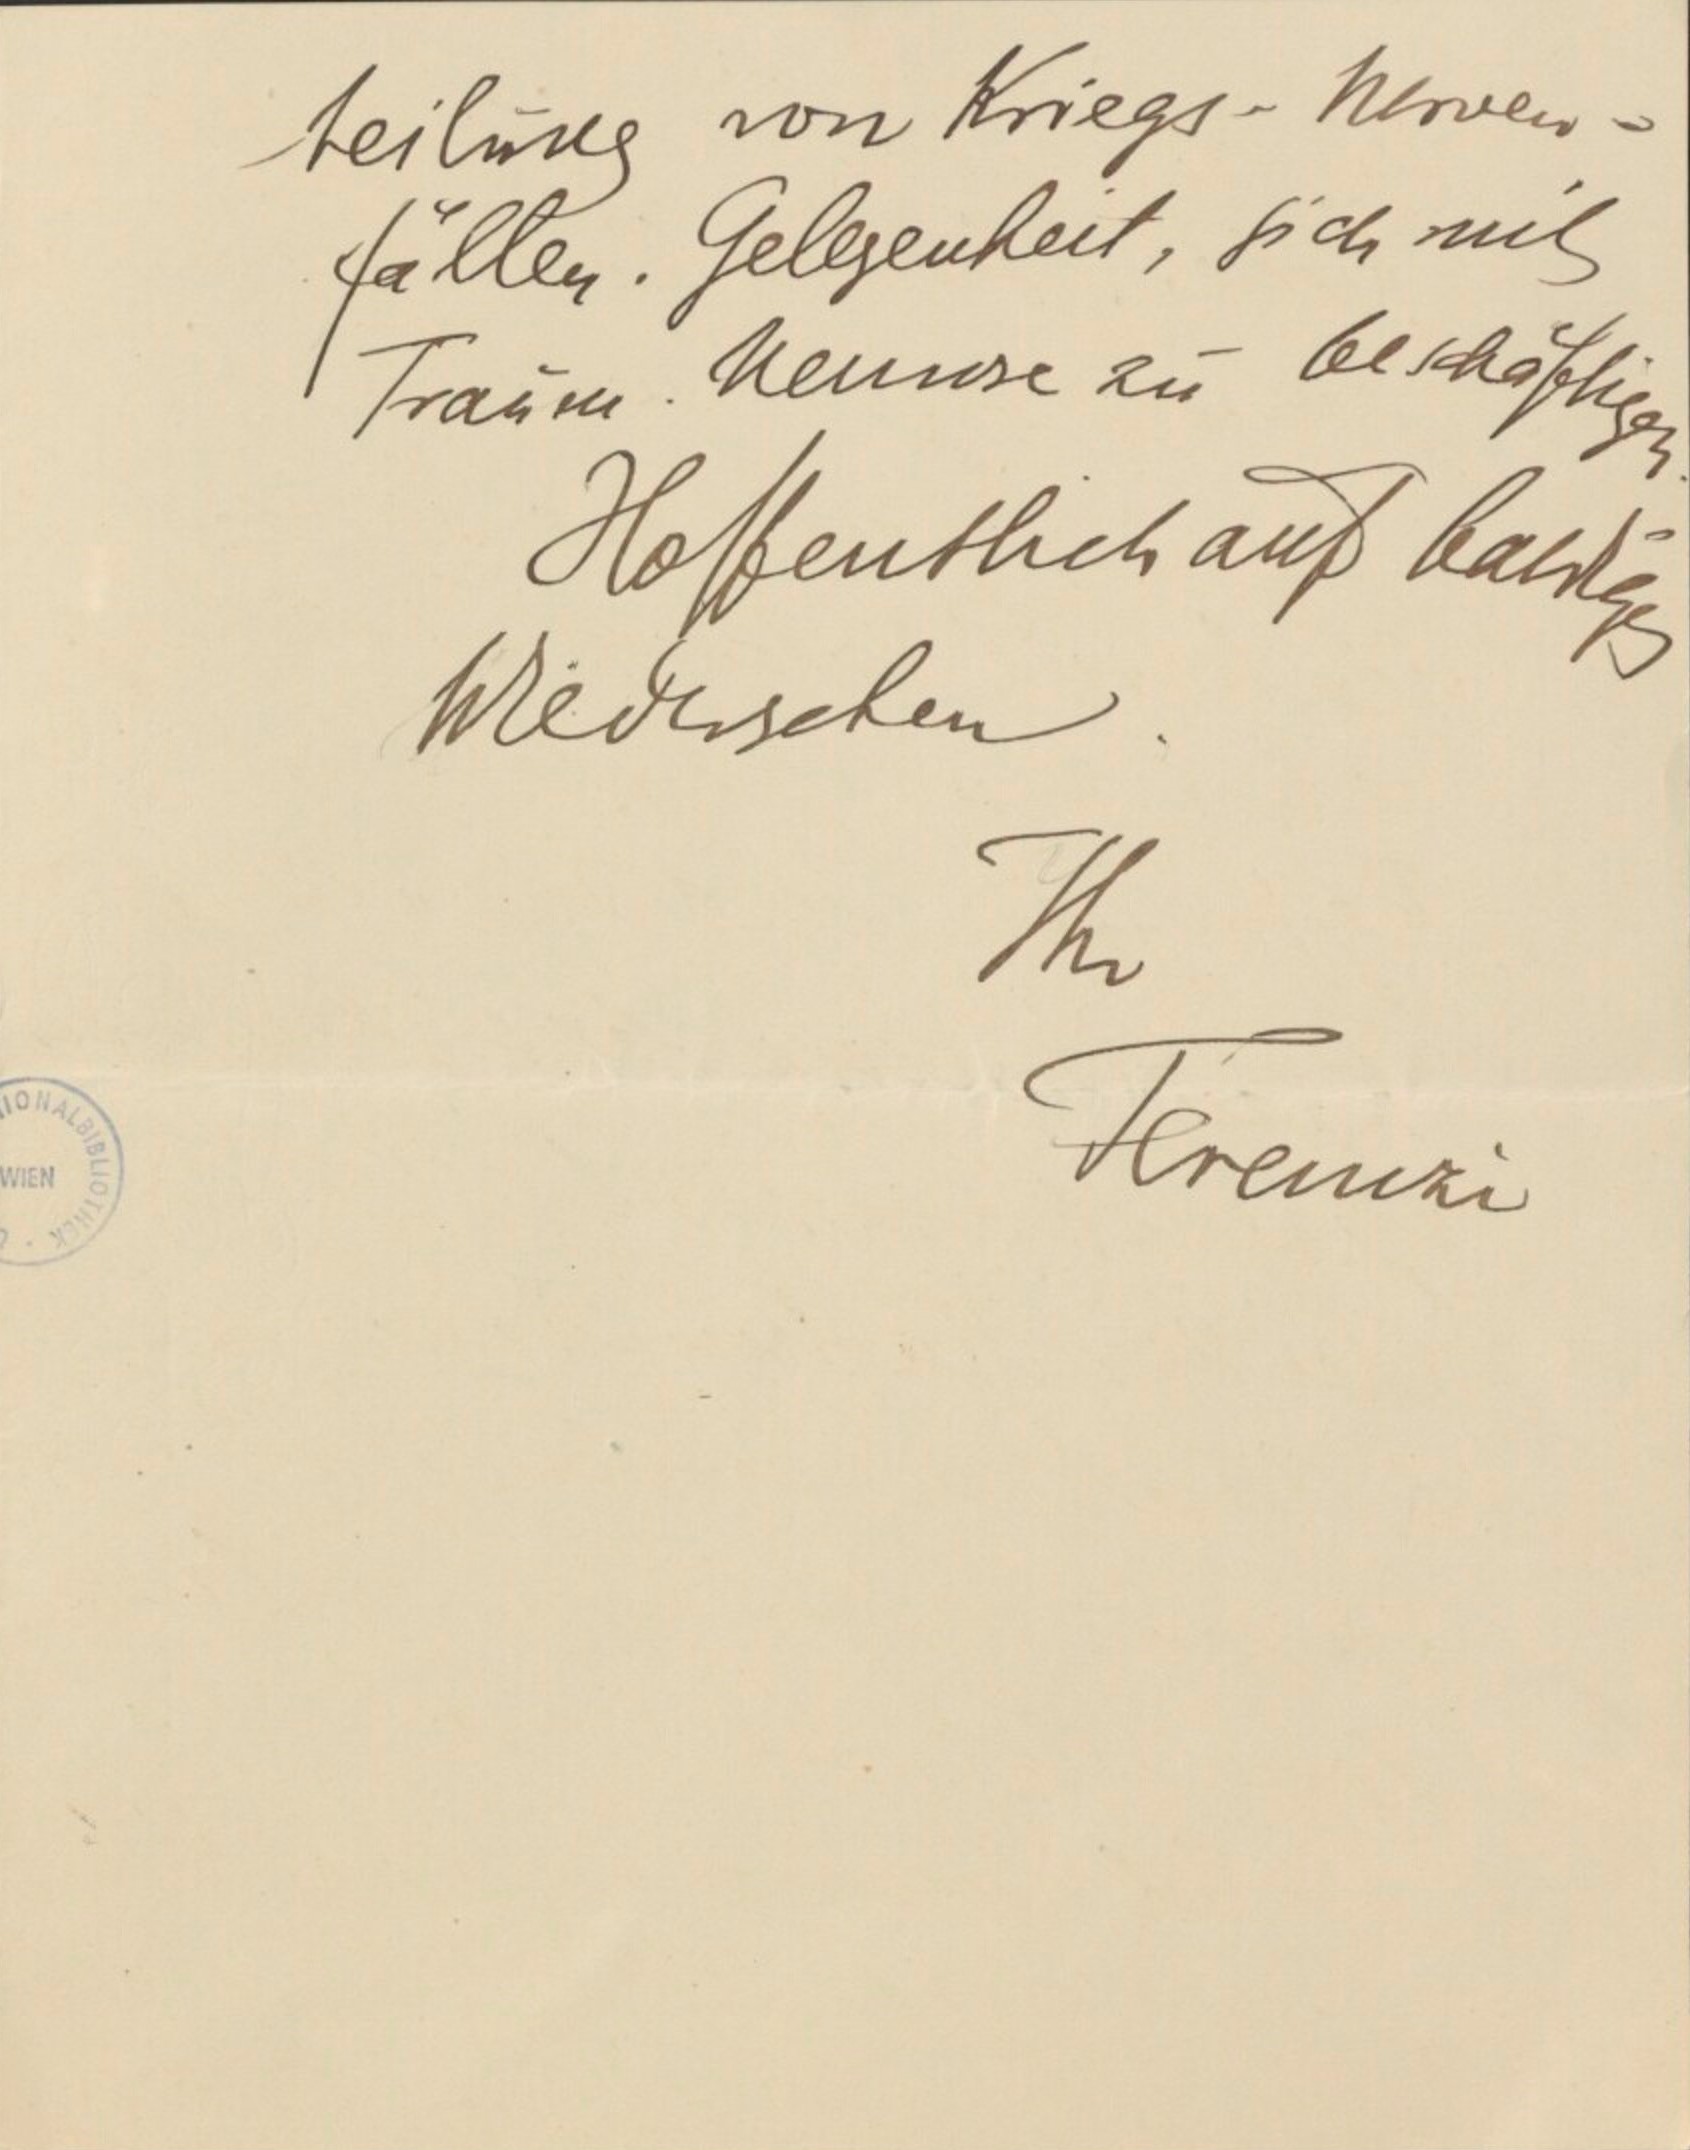 teilung von Kriegs-Nerven=
fällen. Gelegenheit, sich mit
Traum. Neurose zu beschäftigen.
Hoffentlich auf baldiges
Wiedersehen.
Ihr
Ferenczi
IONALBIBLIOTHEK
WIEN